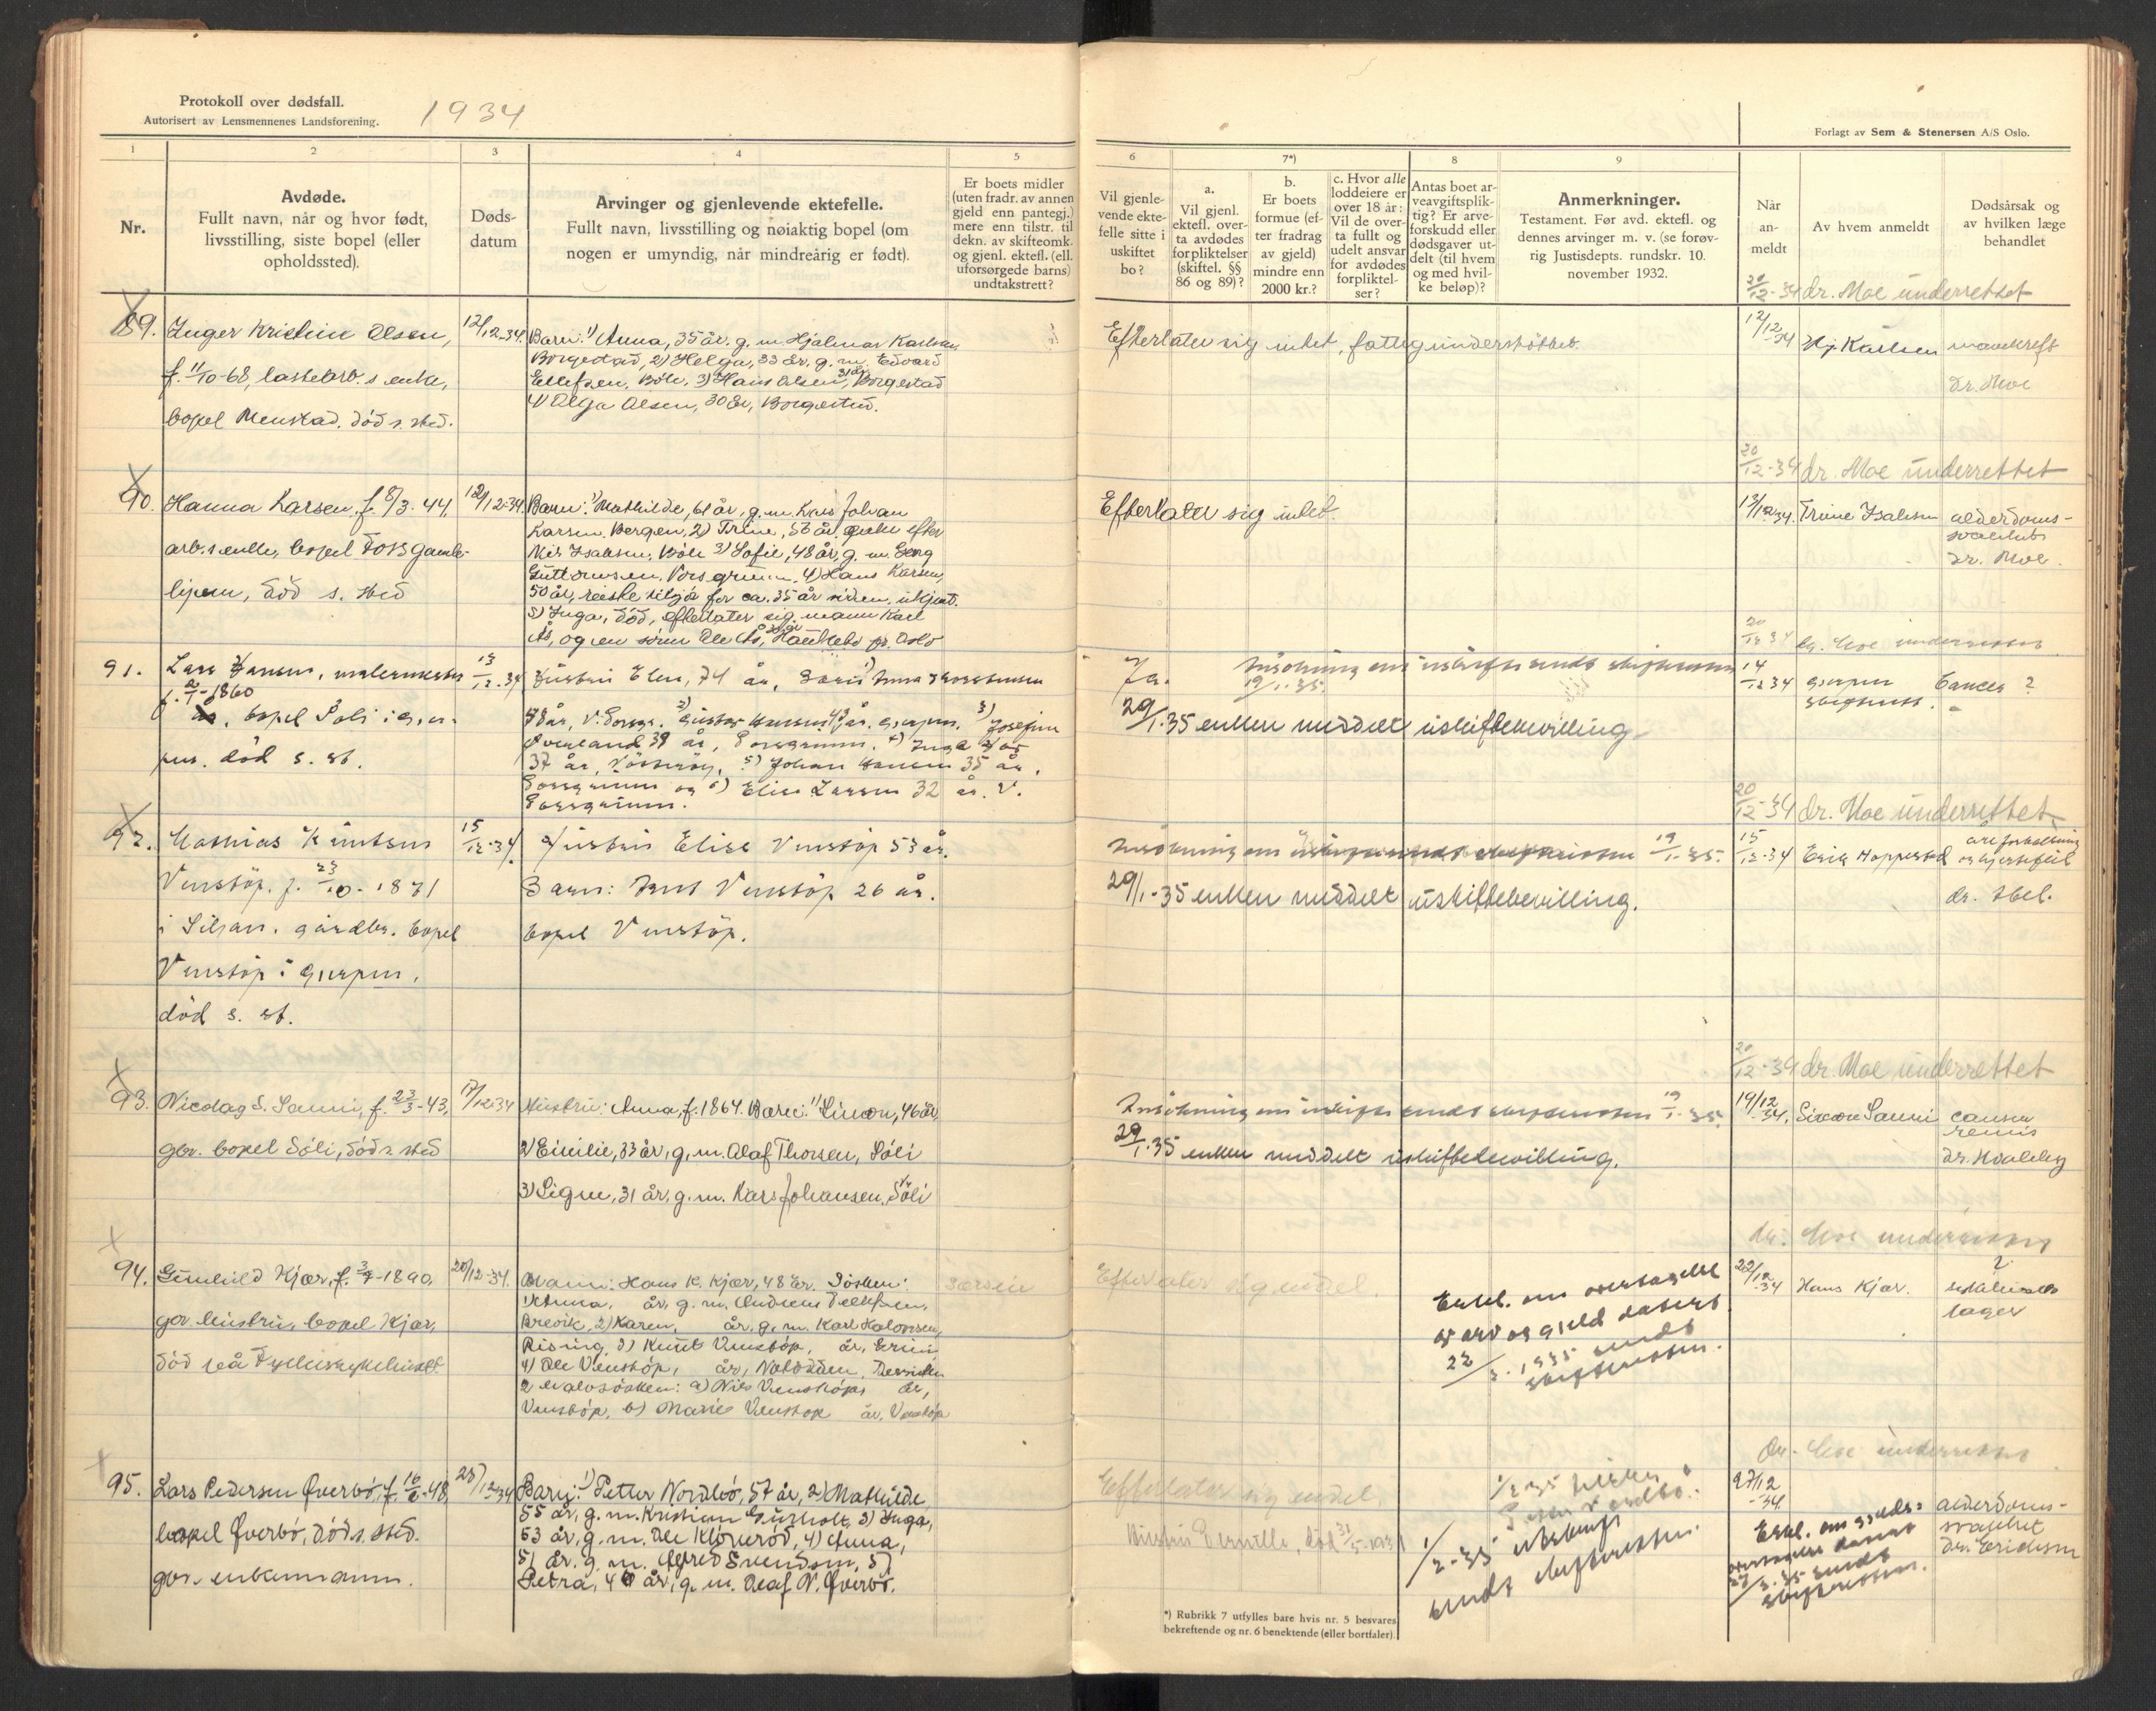 Protokoll over dødsfall.
Autorisert av Lensmennenes Landsforening.
1934
Forlagt av Sem & Stenersen A/S Oslo.
1
2
3
4
5
6
7*)
8
9
Nr.
Avdøde.
Fullt navn, når og hvor født,
livsstilling, siste bopel (eller
opholdssted).
Døds-
datum
Arvinger og gjenlevende ektefelle.
Fullt navn, livsstilling og nøiaktig bopel (om
nogen er umyndig, når mindreårig er født).
Er boets midler
(uten fradr. av annen
gjeld enn pantegj.)
mere enn tilstr. til
dekn. av skifteomk.
og gjenl. ektefl. (ell.
uforsørgede barns)
undtakstrett?
Vil gjenle-
vende ekte-
felle sitte i
uskiftet
bo?
a.
Vil gjenl.
ektefl. over-
ta avdødes
forpliktelser
(skiftel. §§
86 og 89)?
b.
Er boets
formue (ef-
ter fradrag
av gjeld)
mindre enn
2000 kr.?
c. Hvor alle
loddeiere er
over 18 år:
Vil de over-
ta fullt og
udelt ansvar
for avdødes
forpliktel-
ser?
Antas boet ar-
veavgiftsplik-
tig? Er arve-
forskudd eller
dødsgaver ut-
delt (til hvem
og med hvil-
ke beløp)?
Anmerkninger.
Testament. Før avd. ektefl. og
dennes arvinger m. v. (se forøv-
rig Justisdepts. rundskr. 10.
november 1932.
Når
an-
meldt
Av hvem anmeldt
Dødsårsak og
av hvilken læge
behandlet
20/12-34 dr. Moe underrettet
89. Inger Kristine Olsen,
f. 11/10-68, lastearb.s enke,
bopel Menstad. död s. sted.
12/12-34.
Barn: 1) Anna, 35 år, g. m. Hjalmar Karlsen
Borgestad, 2) Helga, 33 år, g. m. Edvard
Ellefsen, Böle, 3) Hans Olsen, 31 år, Borgestad
4) Olga Olsen, 30 år, Borgestad.
Efterlater sig intet, fattigunderstöttet.
12/12-34
Hj. Karlsen
mavekreft
dr. Moe
20/12-34 dr. Moe underrettet
90. Hanna Larsen, f. 8/3-44,
arb.s enke, bopel Foss gamle-
hjem, död s. sted
12/12-34.
Barn: 1) Mathilde, 61 år, g. m. Lars Johan
Larsen, Bergen, 2) Trine, 56 år, enke efter
Nils Isaksen, Böle 3) Sofie, 48 år, g. m. Georg
Guttormsen, Porsgrunn, 4) Hans Larsen,
50 år, reiste tilsjös for ca. 35 år siden, ukjent.
5) Inga, död, efterlater sig mann Karl
Ås, og en sönn Ole Ås, Haukebo pr. Oslo
Efterlater sig intet.
13/12-34.
Trine Isaksen
alderdoms-
svakhet
dr. Moe.
20/12-34 dr. Moe underrettet
91. Lars Hansen, malermester
f. 2/1-1860
bopel Söli i Gjer-
pen. död s. st.
13/12-34
Hustru Elen, 74 år,
48 år, V. Porsgr. 2) Gustav Hansen 43 år. Gjerpen. 3) Josefine
Överland 39 år, Porsgrunn. 4) Inga
37 år, 5) Johan Hansen 35 år,
Porsgrunn og 6) Elise Larsen 32 år. V.
Porsgrunn.
Ja.
Ansökning om uskifte sendt skifteretten
19/1.35.
29/1.35 enken meddelt uskiftebevilling.
14/12-34
Gjerpen
Cancer ?
20/12-34 dr. Moe underrettet
92. Mathias Knutsen
Venstöp. f. 23/10-1871
i Siljan. gårdbr. bopel
Venstöp i Gjerpen.
död s. st.
15/12-34
Hustru Elise Venstöp 53 år.
Barn: Knut Venstöp 26 år.
bopel Venstöp.
Ansökning om uskifte sendt skifteretten 19/1-35.
29/1-35 enken meddelt uskiftebevilling.
15/12-34
Erik Hoppestad
åreforkalkning
og hjertefeil
dr. Abel.
20/12-34 dr. Moe underrettet
93. Nicolay S. Sanni, f. 23/3-43,
gbr. bopel Söli, död s. sted
17/12-34
Hustru: Anna, f. 1864. Barn: 1) Simon, 46 år,
2) Emilie, 33 år, g. m. Olaf Thorsen, Söli
3) Signe, 31 år, g. m. Lars Johansen, Söli
Ansökning om uskifte sendt skifteretten 19/1-35.
29/1.35 enken meddelt uskiftebevilling.
19/12-34.
Simon Sanni
cancer
renis
dr. Hvaleby
dr. Moe underrettet
94. Gunhild Kjær, f. 3/7-1890,
gbr. hustru, bopel Kjær,
död på Fylkessykehuset
20/12-34.
Mann: Hans K. Kjær, 48 år. Sösken:
1) Anna, år, g. m. Andreas Tellefsen,
Brevik, 2) Karen, år, g. m. Karl Halvorsen,
Rising, 3) Knut Venstöp, år,
4) Ole Venstöp, år, Notodden. Dessuten
2 halvsösken: a) Nils Venstöp, år,
Venstöp, b) Marie Venstöp år, Venstöp
særeie
Efterlater sig endel.
Erkl. om overtagelse
av arv og gjeld datert
22/3. 1935 sendt
skifteretten.
22/12-34
Hans Kjær.
?
95. Lars Pedersen Överbö, f. 16/6-48,
bopel Överbö, död s. sted.
gbr. enkemann.
25/12-34
Barn: 1) Petter Nordbö, 57 år, 2) Mathilde,
55 år, g. m. Kristian Gurholt, 3) Inga,
53 år, g. m. Ole Klöveröd, 4) Anna,
51 år, g. m. Alfred Svendsen, 5)
Petra, 46 år, g. m. Olaf N. Överbö.
Efterlater sig endel
Hustru Pernille, död 31/5-1931
1/2-35
Petter Nordbö.
1/2-35
sendt skifteretten.
dr. Moe underrettet
27/12-34.
Erkl. om gjelds-
overtagelse datert
27/3.35 sendt
skifteretten.
alderdoms-
svakhet
dr. Erichsen
*) Rubrikk 7 utfylles bare hvis nr. 5 besvares
bekreftende og nr. 6 benektende (eller bortfaler).